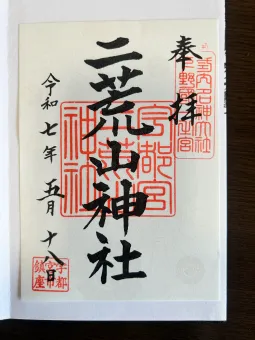 奉拝
二荒山神社
令和七年五月十八日
宇都宮
二荒山
神社
宇都宮市
鎮座